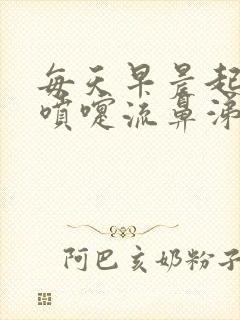 每天早晨起
喷嚏流鼻涕
阿巴亥奶粉子